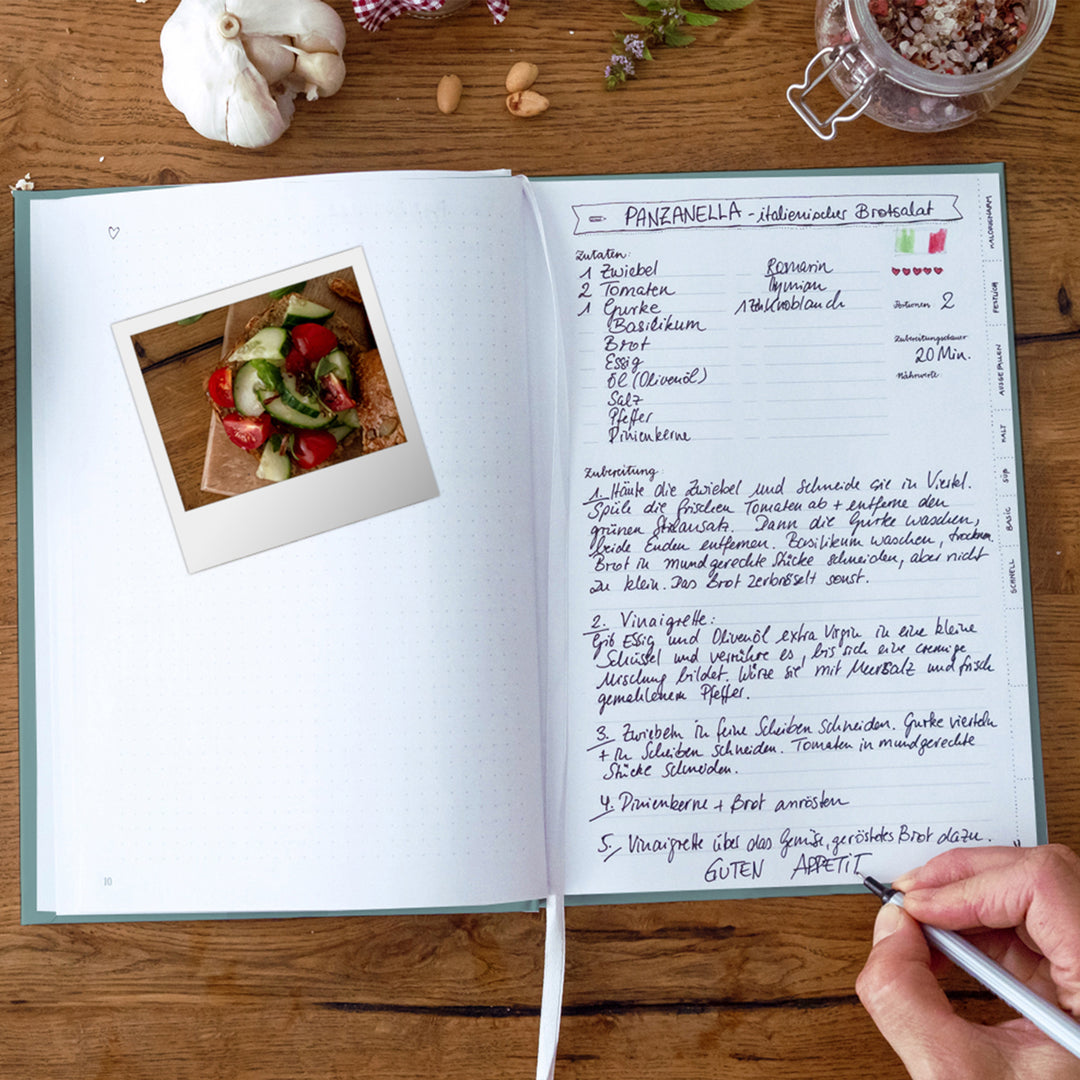 PANZANELLA - italienischer Brotsalat
Zutaten:
1 Zwiebel
2 Tomaten
1 Gurke
Basilikum
Brot
Essig
Öl (Olivenöl)
Salz
Pfeffer
Pinienkerne
Rosmarin
Tymian
1 Zeh Knoblauch
Portionen 2
Zubereitungsdauer
20 Min.
Nährwerte:
Zubereitung:
1. Häute die Zwiebel und schneide sie in Viertel.
Spüle die frischen Tomaten ab + entferne den
grünen Strunkansatz. Dann die Gurke waschen,
beide Enden entfernen. Basilikum waschen, trocknen.
Brot in mundgerechte Stücke schneiden, aber nicht
zu klein. Das Brot zerbröselt sonst.
2. Vinaigrette:
Gib Essig und Olivenöl extra Virgin in eine kleine
Schüssel und verrühre es, bis sich eine cremige
Mischung bildet. Würze sie mit Meersalz und frisch
gemahlenem Pfeffer.
3. Zwiebeln in feine Scheiben schneiden. Gurke vierteln
+ in Scheiben schneiden. Tomaten in mundgerechte
Stücke schneiden.
4. Pinienkerne + Brot anrösten
5. Vinaigrette über das Gemüse, geröstetes Brot dazu.
GUTEN APPETIT
KALORIENARM
FESTLICH
AUSGEFALLEN
KALT
SÜß
BASIC
SCHNELL
10